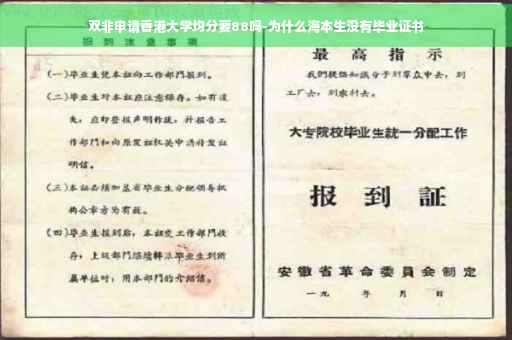 双非申请香港大学均分要88吗-为什么海本生没有毕业证书
报到注意事项
(一)毕业生凭本证向工作部门报到。
(二)毕业生对本证应注意保存。如有遗
失，应即登报声明作废，并报告工
作部门和向原发证机关申请补发证
明信。
(三)本证必须加盖省毕业生分配领导机
构公章方为有效。
(四)毕业生报到后，本证交工作部门收
存；上级部门继续转派毕业生到所
属单位时，用本部门的介绍信。
最高指示
我们提倡知识分子到群众中去，到
工厂去，到农村去。
大专院校毕业生统一分配工作
报到証
安徽省革命委員会制定
一九 年 月 日